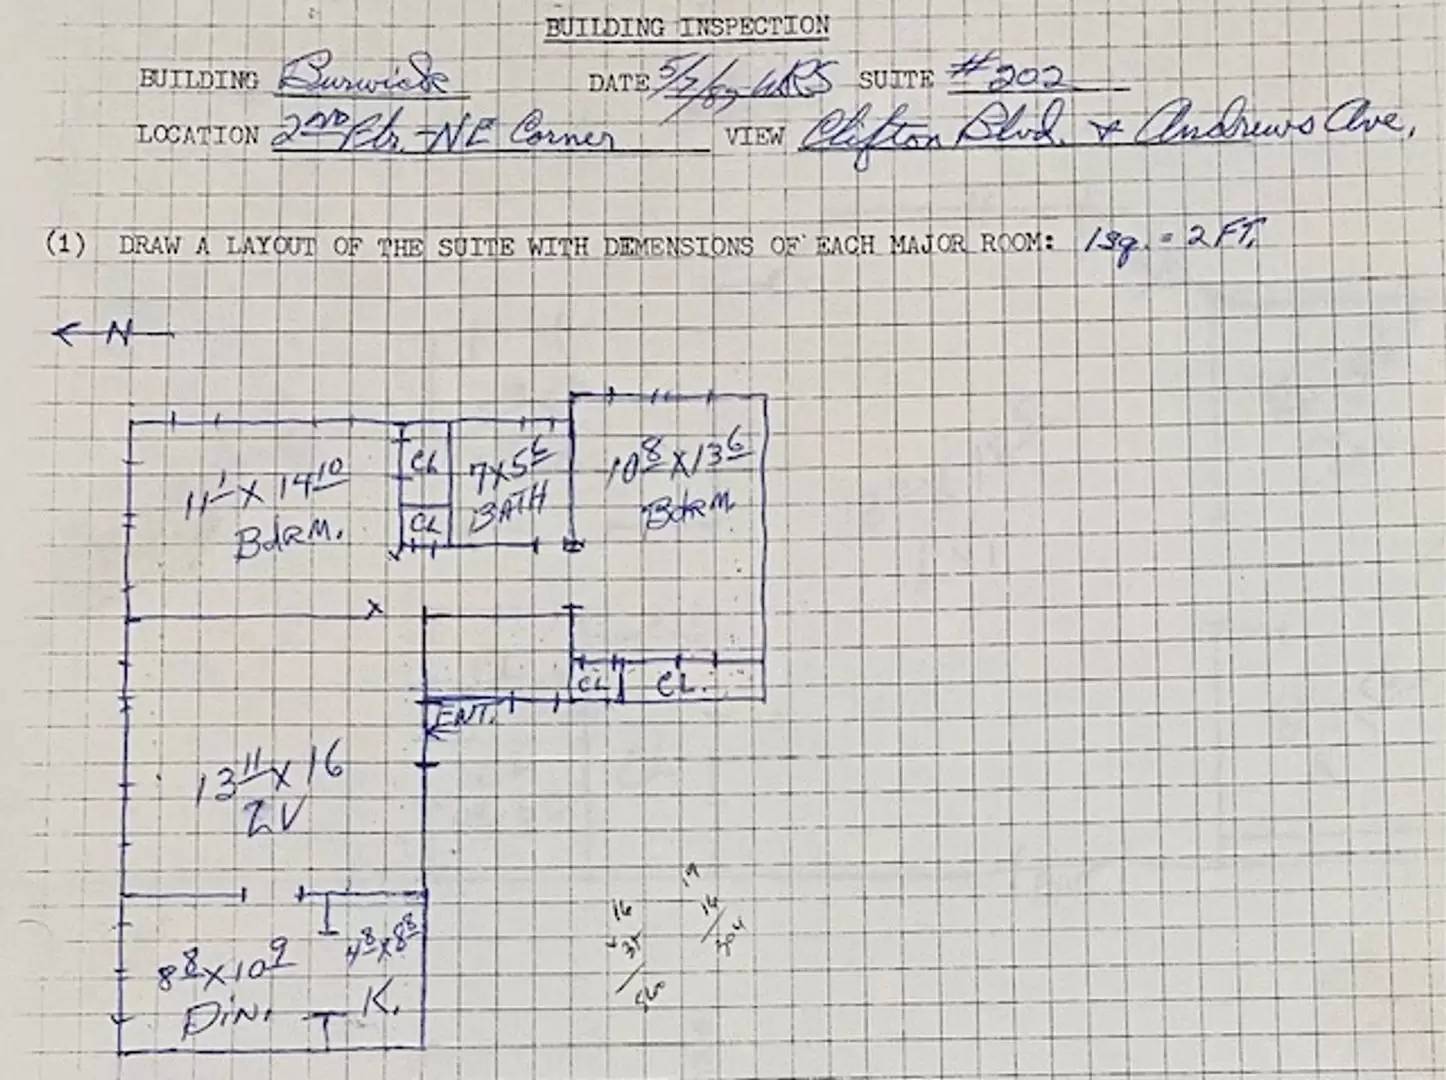 BUILDING INSPECTION
BUILDING Burwick DATE 5/7/87 WRS SUITE #202
LOCATION 2ND Flr. -NE Corner VIEW Clifton Blvd. & Andrews Ave.
(1) DRAW A LAYOUT OF THE SUITE WITH DEMENSIONS OF EACH MAJOR ROOM: 1 sq. = 2 FT.
← N
11 1 X 14 10
BdRM.
CL
CL
7X5 6
BATH
10 8 X 13 6
BdRM
CL
CL.
ENT.
13 11 X 16
LV
8 8 X 10 9
DiN.
4 8 X 8 8
K.
19
16
304
16
35
560